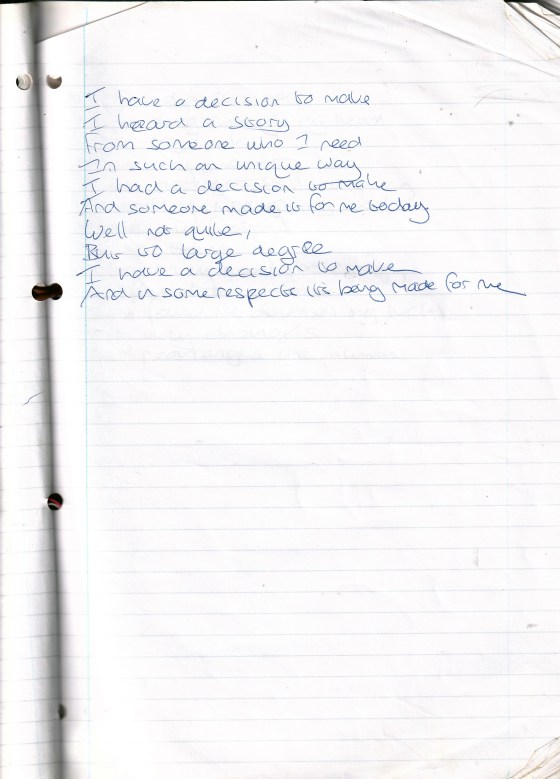 I have a decision to make
I heard a story
From someone who I need
In such an unique way
I had a decision to make
And someone made it for me today
Well not quite,
But to large degree
I have a decision to make
And in some respects it's being made for me